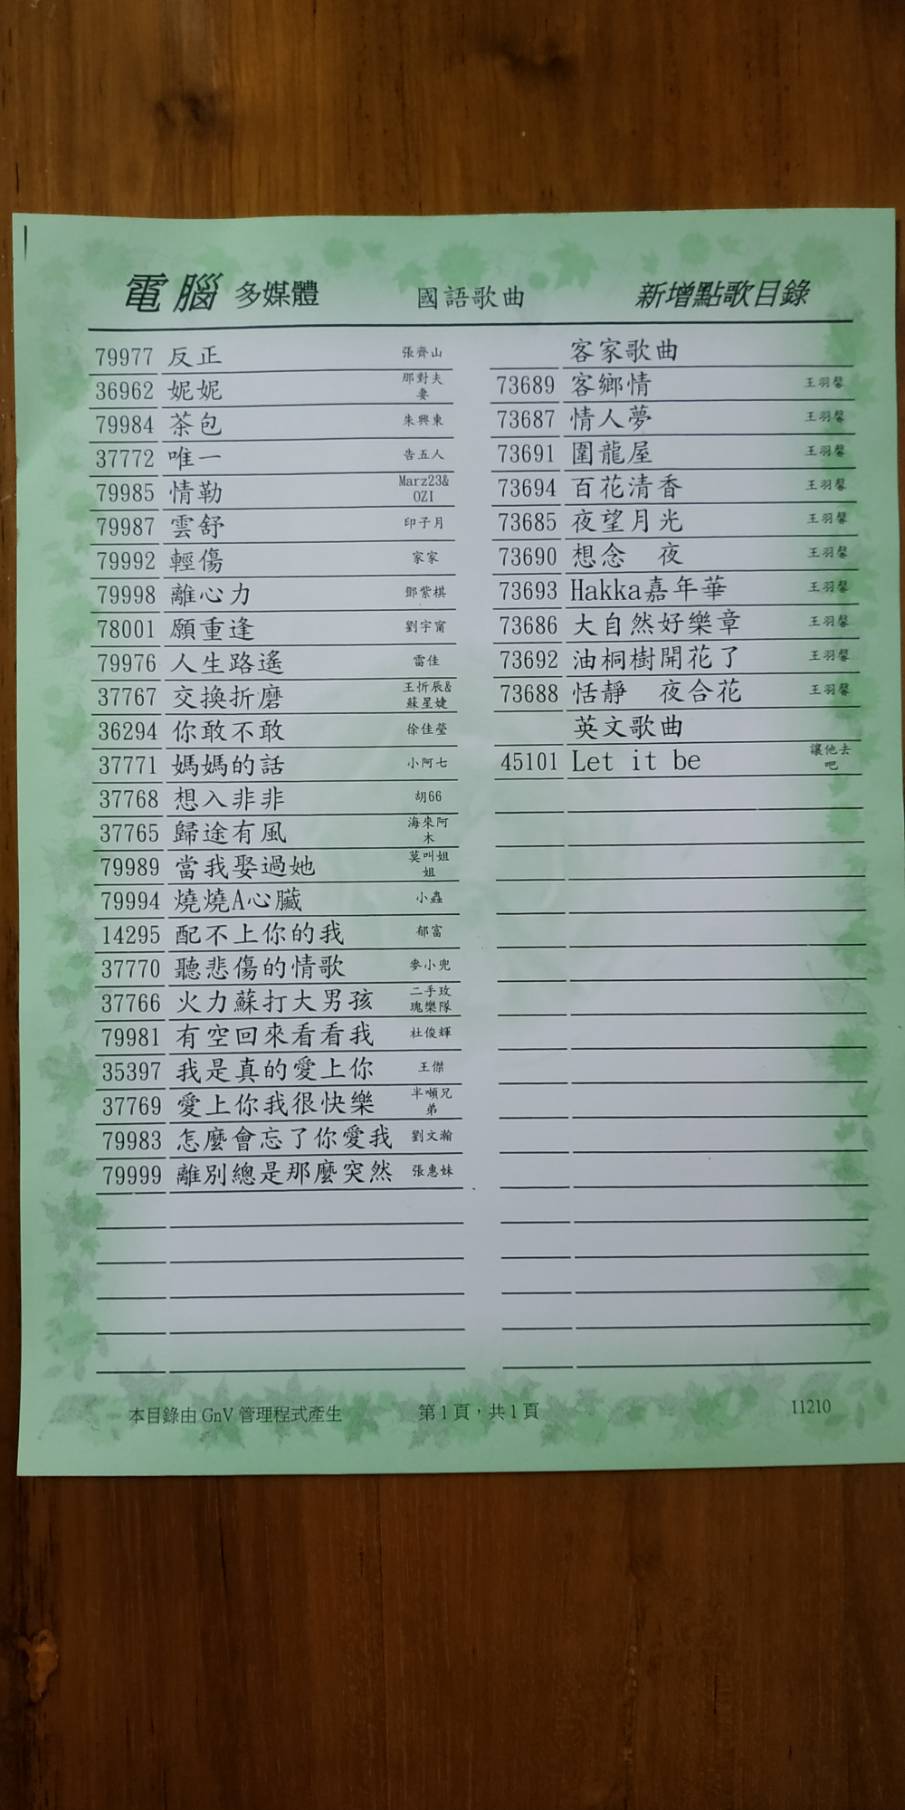 電腦 多媒體 國語歌曲 新增點歌目錄
79977 反正 張齊山
36962 妮妮 那對夫妻
79984 茶包 朱興東
37772 唯一 告五人
79985 情勒 Marz23&OZI
79987 雲舒 印子月
79992 輕傷 家家
79998 離心力 鄧紫棋
78001 願重逢 劉宇甯
79976 人生路遙 雷佳
37767 交換折磨 王忻辰&蘇星婕
36294 你敢不敢 徐佳瑩
37771 媽媽的話 小阿七
37768 想入非非 胡66
37765 歸途有風 海來阿木
79989 當我娶過她 莫叫姐姐
79994 燒燒A心臟 小蟲
14295 配不上你的我 郁富
37770 聽悲傷的情歌 麥小兜
37766 火力蘇打大男孩 二手玫瑰樂隊
79981 有空回來看看我 杜俊輝
35397 我是真的愛上你 王傑
37769 愛上你我很快樂 半噸兄弟
79983 怎麼會忘了你愛我 劉文瀚
79999 離別總是那麼突然 張惠妹
客家歌曲
73689 客鄉情 王羽馨
73687 情人夢 王羽馨
73691 圍龍屋 王羽馨
73694 百花清香 王羽馨
73685 夜望月光 王羽馨
73690 想念 夜 王羽馨
73693 Hakka嘉年華 王羽馨
73686 大自然好樂章 王羽馨
73692 油桐樹開花了 王羽馨
73688 恬靜 夜合花 王羽馨
英文歌曲
45101 Let it be 讓他去吧
本目錄由 GnV 管理程式產生 第1頁，共1頁 11210